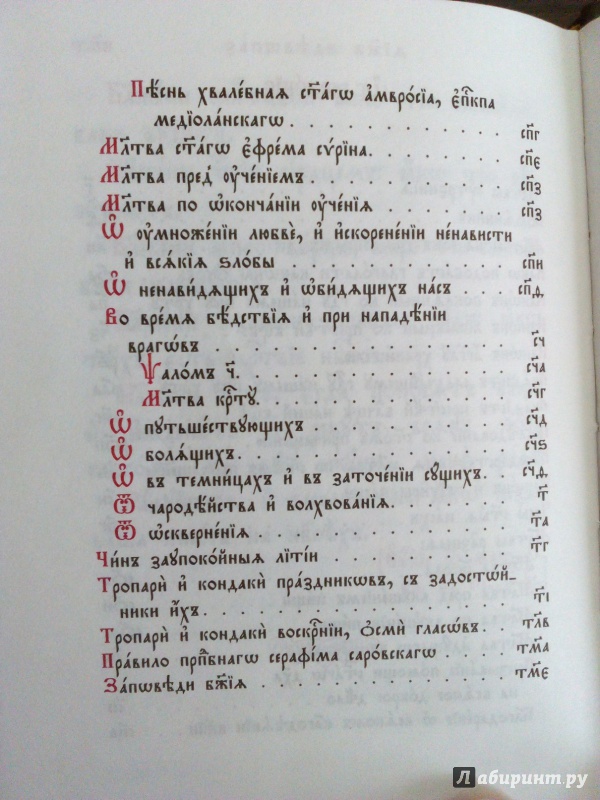 Пѣ́снь хвале́бная ст҃а́гѡ а҆мвро́сїа, є҆пⷭ҇кпа
медїѡла́нскагѡ. . . . . . . . . . . . . сп҃г
Мл҃тва ст҃а́гѡ є҆фре́ма сѵ́рїна. . . . . . . . сп҃є
Мл҃тва пред̾ ᲂу҆че́нїемъ. . . . . . . . . . . сп҃з
Мл҃тва по ѡ҆конча́нїи ᲂу҆че́нїѧ . . . . . . . сп҃з
Ѡ ᲂу҆множе́нїи любвѐ, и҆ и҆скорене́нїи не́нависти
и҆ всѧ́кїѧ ѕло́бы . . . . . . . . . . . . сп҃и
Ѡ ненави́дѧщихъ и҆ ѡ҆би́дѧщихъ на́съ . . . . сп҃ѳ
Во вре́мѧ бѣ́дствїѧ и҆ при нападе́нїи
врагѡ́въ . . . . . . . . . . . . . . . с҃ч
Ѱало́мъ ч҃. . . . . . . . . . . . . . . сч҃а
Мл҃тва крⷭ҇тꙋ̀. . . . . . . . . . . . . . сч҃г
Ѡ пꙋтьше́ствꙋющихъ . . . . . . . . . . . сч҃д
Ѡ болѧ́щихъ. . . . . . . . . . . . . . . сч҃ѕ
Ѡ въ темни́цахъ и҆ въ заточе́нїи сꙋ́щихъ. . . сч҃ѳ
Ѿ чародѣ́йства и҆ волхвова́нїѧ. . . . . . . . т҃
Ѿ ѡ҆скверне́нїѧ . . . . . . . . . . . . . т҃а
Чи́нъ заꙋпоко́йныѧ лїті́и . . . . . . . . . т҃г
Тропарѝ и҆ кондакѝ пра́здникѡвъ, съ задостѡ́й-
никиꙋ и҆́хъ. . . . . . . . . . . . . . . т҃і
Тропарѝ и҆ кондакѝ воскрⷭ҇нїи, ѻ҆смѝ гласѡ́въ. . тл҃в
Пра́вило прпⷣбнагѡ серафі́ма саро́вскагѡ . . . тм҃а
За́пѡвѣди бж҃їѧ . . . . . . . . . . . . . тм҃є
Лабиринт.ру